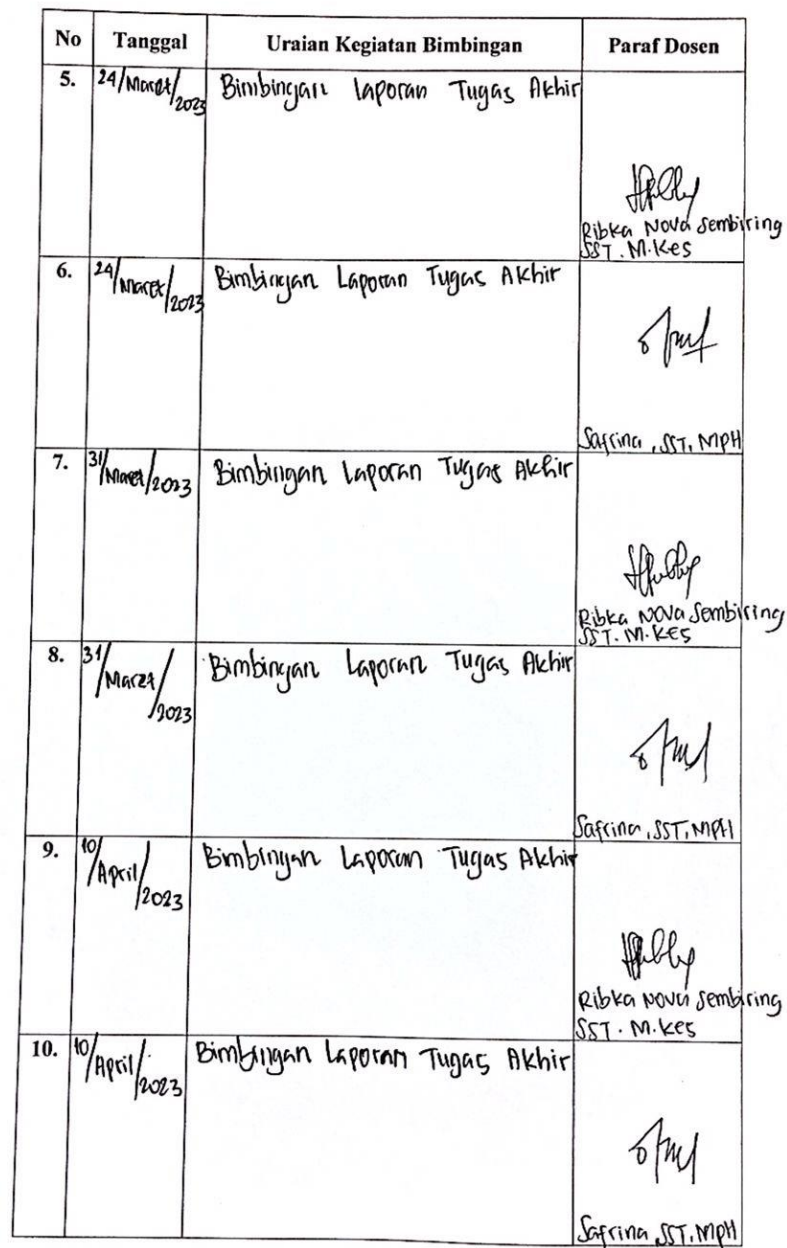 No Tanggal Uraian Kegiatan Bimbingan Paraf Dosen
5. 24/Maret/2023 Bimbingan Laporan Tugas Akhir
Ribka Nova Sembiring
SST. M.Kes
6. 24/Maret/2023 Bimbingan Laporan Tugas Akhir
Safrina, SST, MPH
7. 31/Maret/2023 Bimbingan Laporan Tugas Akhir
Ribka Nova Sembiring
SST. M.Kes
8. 31/Maret/2023 Bimbingan Laporan Tugas Akhir
Safrina, SST, MPH
9. 10/April/2023 Bimbingan Laporan Tugas Akhir
Ribka Nova Sembiring
SST. M.Kes
10. 10/April/2023 Bimbingan Laporan Tugas Akhir
Safrina, SST, MPH